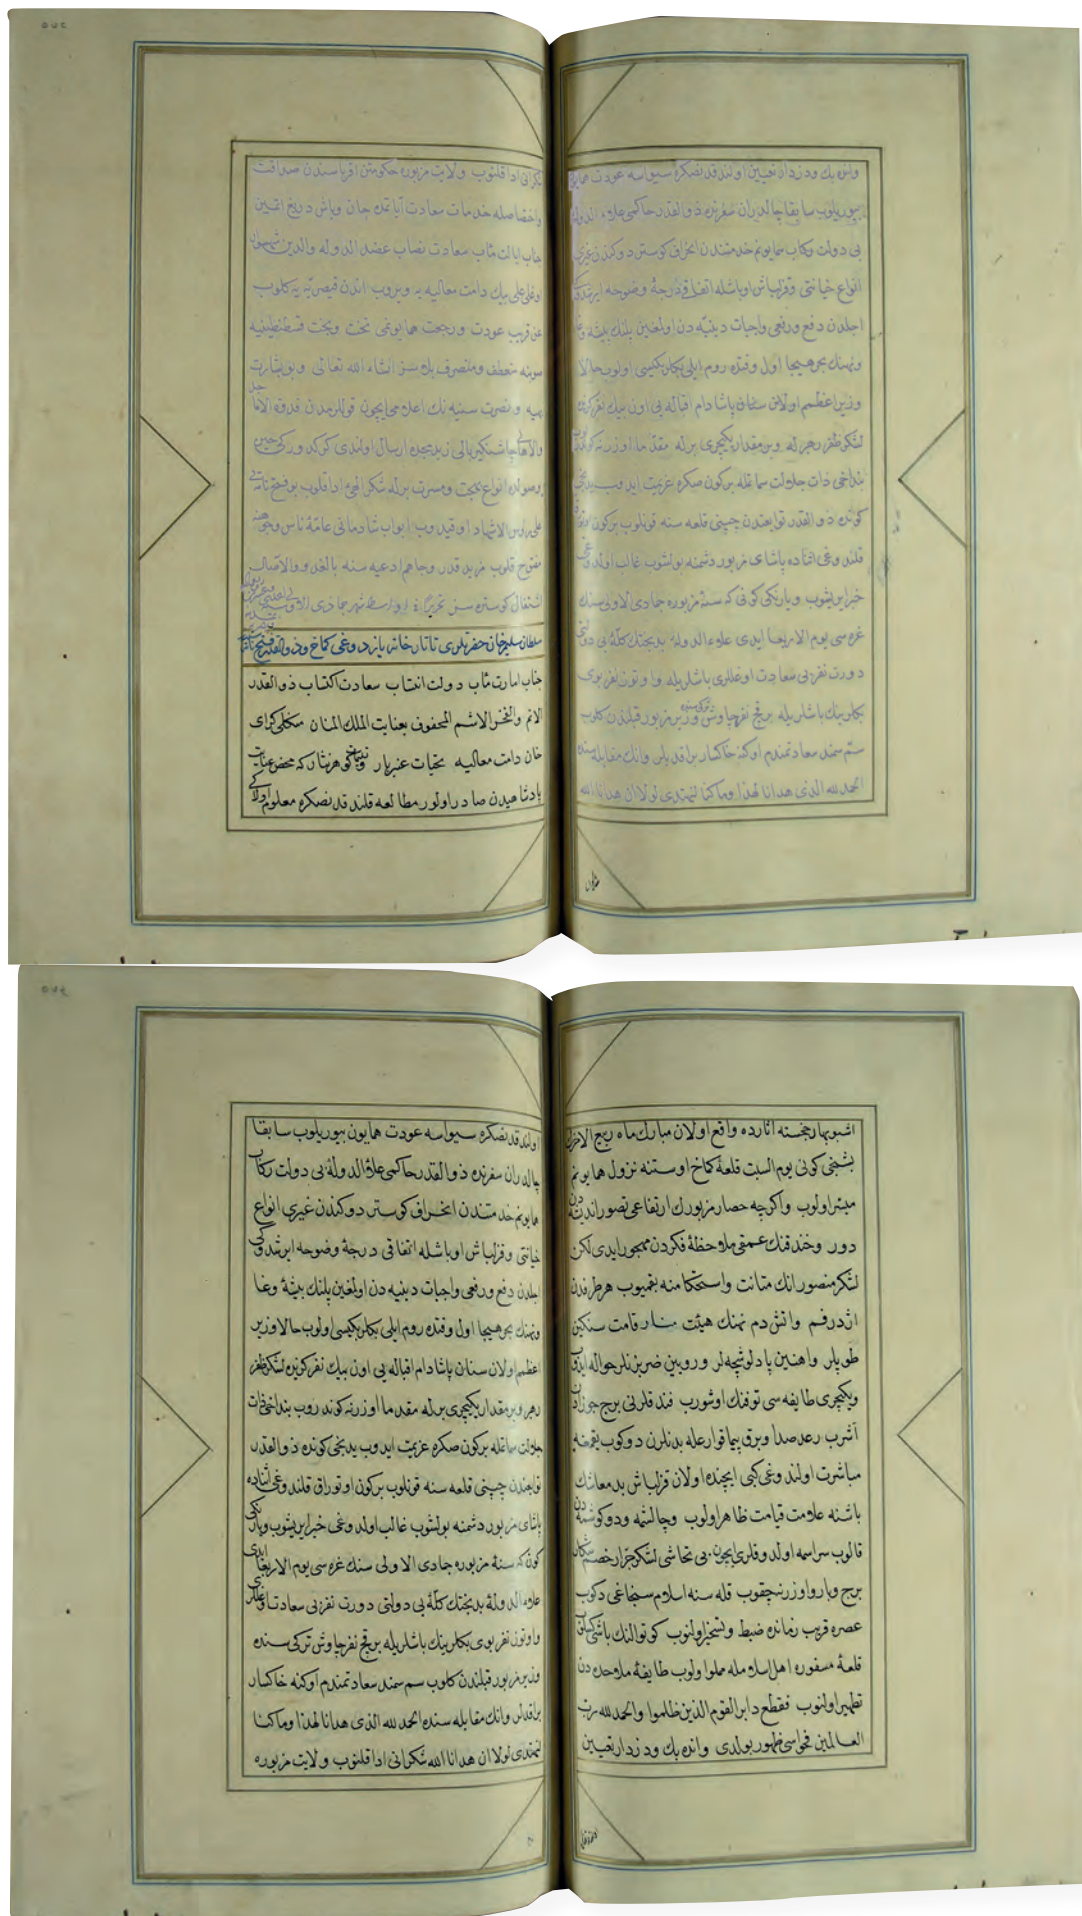 وانده بك ودزدار تعيين اولندقدنصكره سيواسه عودت همايون
بيوريلوب سابقا چالدران سفرنده ذوالقدر حاكمى علاء الدوله
بى دولت ركاب همايونم خدمتندن انحراف كوستردوكندن غيرى
انواع خيانتى وقزلباش اوباشله اتفاقى درجهٔ وضوحه ايرشدوكى
اجلدن دفع ورفعى واجبات دينيه دن اولغين پلنك بيشهٔ وغا
ونهنك بحر هيجا اول وقتده روم ايلى بكلربكيسى اولوب حالا
وزير اعظم اولان سنان پاشا دام اقباله يى اون بيك نفر كزيده
لشكر ظفر رهبر له وبر مقدار يكيچرى برله مقدما اوزرنه كوندروب
بنداخى ذات جلالت سماتمله بر كون صكره عزيمت ايدوب يديجى
كونده ذوالقدر توابعندن چپنى قلعه سنه قونلوب بر كون اوتوراق
قلندوغى اثناده پاشاى مزبور دشمنه بولشوب غالب اولدوغى
خبر ايريشوب ويارنكى كونى كه سنهٔ مزبوره جمادى الاولى سنك
غره سى يوم الاربعا ايدى علاء الدولهٔ بدبختك كلهٔ بى دولتى
دورت نفر بى سعادت اوغللرى باشلريله واوتوز نفر بوى
بكلرينك باشلريله بر قچ نفر چاوش تركى سنده وزير مزبور قبلندن كلوب
سم سمند سعادتمندم اوكنه خاكسار براقديلر وانك مقابله سنده
الحمد لله الذى هدانا لهذا وماكنا لنهتدى لولا ان هدانا الله
شكرانى ادا قلنوب ولايت مزبوره حكومتن اقرباسندن صداقت
واختصاصله خدمات سعادت آياتمده جان وباش دريغ اتمين
جناب ايالت مآب سعادت نصاب عضد الدوله والدين شهسوار
اوغلى على بيك دامت معاليه يه ويروب اندن قيصريّه يه كلوب
عن قريب عودت ورجعت همايونمى تخت وبخت قسطنطينيه
سوينه منعطف ومنصرف بلك سز انشاء الله تعالى وبو بشارت
بهيه ونصرت سنيه نك اعلامى ايچون قوللرمدن قدوة الاماجد
والاهالى چاشنكير بالى زيد مجده ارسال اولندى كركدور كى حين
وصولده انواع بهجت ومسرت برله شكر الهى ادا قلوب بو فتح نامه يى
على رؤس الاشهاد اوقيدوب ابواب شادمانى عامهٔ ناس وجهنه
مفتوح قلوب مزيد قدر وجاهم ادعيه سنه بالغدو والآصال
اشتغال كوستره سز تحريرًا فى اواسط شهر جمادى الاولى
سلطان سليم خان حضرتلرى تاتار خانه يازدوغى كماخ وذوالقدر فتح نامه
جناب امارت مآب دولت انتساب سعادت اكتساب ذو القدر
الاتم والفخر الاشم المحفوف بعنايت الملك المنان منكلى كراى
خان دامت معاليه تحيات عنبربار وتسليمات كوهرنثار كه محض عنايت
پادشاهيدن صادر اولور مطالعه قلندقدنصكره معلوم اولا كى
اشبو بهار خجسته آثارده واقع اولان مبارك ماه ربيع الاخرك
بشنجى كونى يوم السبت قلعهٔ كماخ اوستنه نزول همايونم
ميسر اولوب واكرچه حصار مزبورك ارتفاعى تصور انديشه دن
دور وخندقنك عمقى ملاحظهٔ فكردن مهجور ايدى لكن
لشكر منصور انك متانت واستحكامنه بقميوب هر طرفدن
اژدر فم واتش دم نهنك هيئت منار قامت سنكين
طوپلر واهنين پادلوشچه لر ورويين ضربزنلر حواله ايدوب
ويكيچرى طايفه سى توفنك اوشورب فندقلرنى برج جوزادن
آشرب رعد صدا وبرق پيما قوارعله بدنلرن دوكوب يقمغه
مباشرت اولندوغى كبى ايچنده اولان قزلباش بدمعاشك
باشنه علامت قيامت ظاهر اولوب وچالشمه ودوكوشمه دن
قالوب سراسمه اولدوقلرى ايچون بى تحاشى لشكر جرار خصم شكار
برج وبارو اوزرنه چقوب قله سنه اسلام سنجاغى دكوب
عصره قريب زمانده ضبط وتسخير اولنوب كوتوالنك باشى كسلوب
قلعهٔ مسفوره اهل اسلامله مملو اولوب طايفهٔ ملاحده دن
تطهير اولنوب فقطع دابر القوم الذين ظلموا والحمد لله رب
العالمين فحواسى ظهور بولدى وانده بك ودزدار تعيين
اولندقدنصكره سيواسه عودت همايون بيوريلوب سابقا
چالدران سفرنده ذوالقدر حاكمى علاء الدولهٔ بى دولت ركاب
همايونم خدمتندن انحراف كوستردوكندن غيرى انواع
خيانتى وقزلباش اوباشله اتفاقى درجهٔ وضوحه ايرشدوكى
اجلدن دفع ورفعى واجبات دينيه دن اولغين پلنك بيشهٔ وغا
ونهنك بحر هيجا اول وقتده روم ايلى بكلربكيسى اولوب حالا وزير
اعظم اولان سنان پاشا دام اقباله يى اون بيك نفر كزيده لشكر ظفر
رهبر وبر مقدار يكيچرى برله مقدما اوزرنه كوندروب بنداخى ذات
جلالت سماتمله بر كون صكره عزيمت ايدوب يديجى كونده ذوالقدر
توابعندن چپنى قلعه سنه قونلوب بر كون اوتوراق قلندوغى اثناده
پاشاى مزبور دشمنه بولشوب غالب اولدوغى خبر ايريشوب ويارنكى
كون كه سنهٔ مزبوره جمادى الاولى سنك غره سى يوم الاربعا ايدى
علاء الدولهٔ بدبختك كلهٔ بى دولتى دورت نفر بى سعادت اوغللرى
واوتوز نفر بوى بكلرينك باشلريله بر قچ نفر چاوش تركى سنده
وزير مزبور قبلندن كلوب سم سمند سعادتمندم اوكنه خاكسار
براقديلر وانك مقابله سنده الحمد لله الذى هدانا لهذا وماكنا
لنهتدى لولا ان هدانا الله شكرانى ادا قلنوب ولايت مزبوره